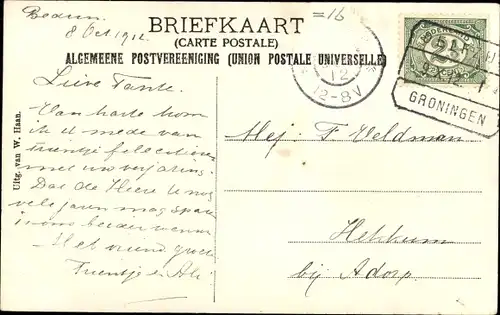 Bedum
8 Oct. 1912
=16
BRIEFKAART
(CARTE POSTALE)
ALGEMEENE POSTVEREENIGING (UNION POSTALE UNIVERSELLE)
12
12-8V
NEDERLAND
GRONINGEN
Uitg. van W. Haan.
Lieve Tante.
Van harte kom
ik U mede van
Trientje feliciteeren
met uw verjaring.
Dat de Heere U nog
vele jaren mag sparen
is ons beider wensch
Met vriend. groet
Trientje & Ali
Mej. F Veldman
Hekkum
bij Adorp.